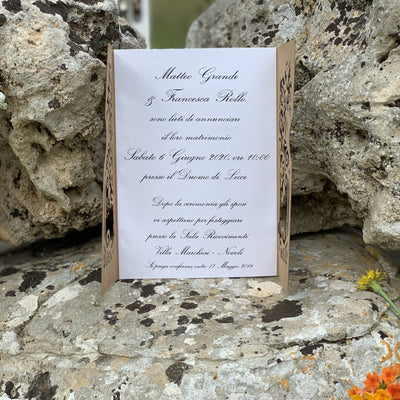 Matteo Grande
& Francesca Rollo
sono lieti di annunciare
il loro matrimonio
Sabato 6 Giugno 2020, ore 10:00
presso il Duomo di Lecce
Dopo la cerimonia gli sposi
vi aspettano per festeggiare
presso la Sala Ricevimenti
Villa Marchesi - Novoli
Si prega conferma entro 17 Maggio 2019